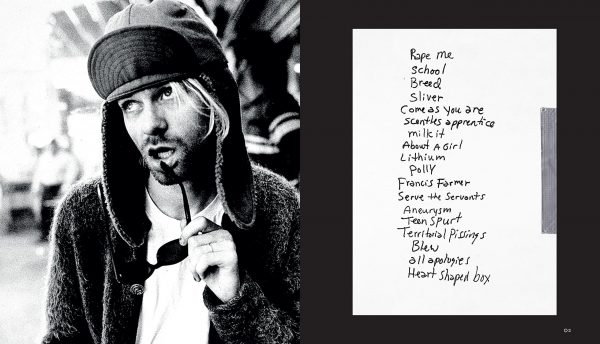 Rape me
School
Breed
Sliver
Come as you are
Scentles apprentice
milk it
About a Girl
Lithium
Polly
Francis Farmer
Serve the Servants
Aneurysm
Teen Spurt
Territorial Pissings
Blew
all apologies
Heart Shaped box